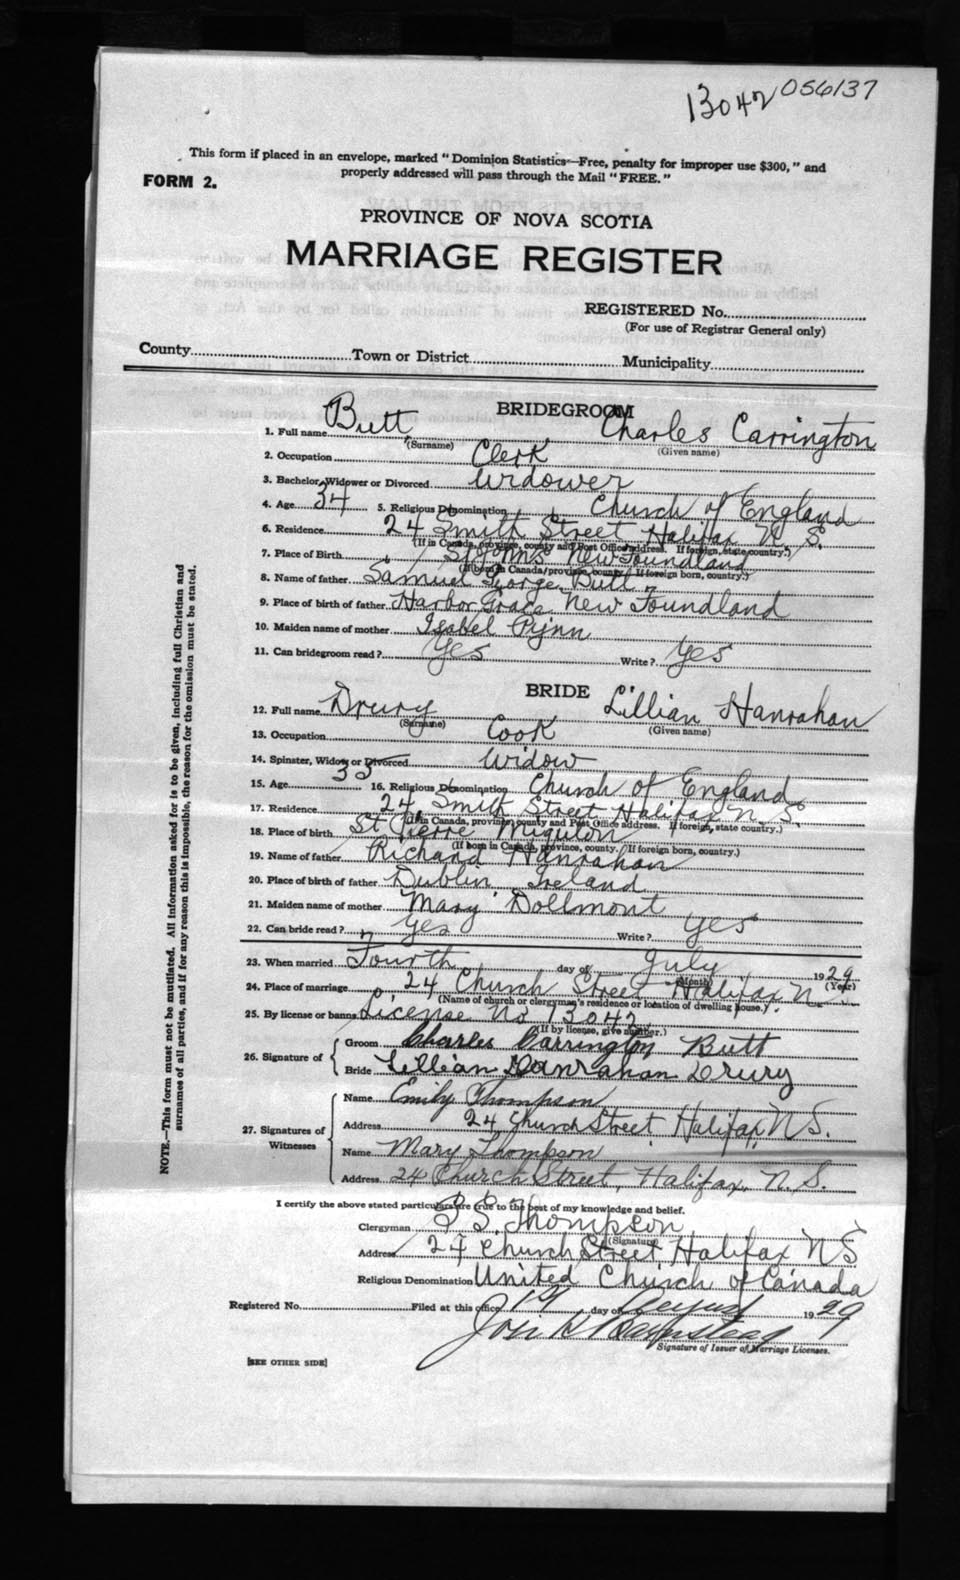 13042 056137
This form if placed in an envelope, marked "Dominion Statistics—Free, penalty for improper use $300," and
properly addressed will pass through the Mail "FREE."
FORM 2.
PROVINCE OF NOVA SCOTIA
MARRIAGE REGISTER
REGISTERED No.
(For use of Registrar General only)
County Town or District Municipality
BRIDEGROOM
1. Full name Butt Charles Carrington
(Surname) (Given name)
2. Occupation Clerk
3. Bachelor, Widower or Divorced Widower
4. Age 34 5. Religious Denomination Church of England
6. Residence 24 Smith Street Halifax N. S.
(If in Canada, province, county and Post Office address. If foreign, state country.)
7. Place of Birth St Johns New Foundland
(If born in Canada, province, county. If foreign born, country.)
8. Name of father Samuel George Butt
9. Place of birth of father Harbor Grace New Foundland
10. Maiden name of mother Isabel Pynn
11. Can bridegroom read? Yes Write? Yes
BRIDE
12. Full name Drury Lillian Hanrahan
(Surname) (Given name)
13. Occupation Cook
14. Spinster, Widow or Divorced Widow
15. Age 33 16. Religious Denomination Church of England
17. Residence 24 Smith Street Halifax N. S.
(If in Canada, province, county and Post Office address. If foreign, state country.)
18. Place of birth St Pierre Miqulon
(If born in Canada, province, county. If foreign born, country.)
19. Name of father Richard Hanrahan
20. Place of birth of father Dublin Ireland
21. Maiden name of mother Mary Dollmont
22. Can bride read? Yes Write? Yes
23. When married Fourth day of July 1929
(Month) (Year)
24. Place of marriage 24 Church Street Halifax N. S.
(Name of church or clergyman's residence or location of dwelling house.)
25. By license or banns License No 13042
(If by license, give number.)
26. Signature of Groom Charles Carrington Butt
Bride Lillian Hanrahan Drury
27. Signatures of Witnesses
Name Emily Thompson
Address 24 Church Street Halifax, N S.
Name Mary Thompson
Address 24 Church Street, Halifax, N. S.
I certify the above stated particulars are true to the best of my knowledge and belief.
Clergyman Thompson
(Signature)
Address 24 Church Street, Halifax N S
Religious Denomination United Church of Canada
Registered No. Filed at this office day of August 1929
Signature of Issuer of Marriage Licenses.
[SEE OTHER SIDE]
NOTE.—This form must not be mutilated. All information asked for is to be given, including full Christian and
surnames of all parties, and if for any reason this is impossible, the reason for the omission must be stated.